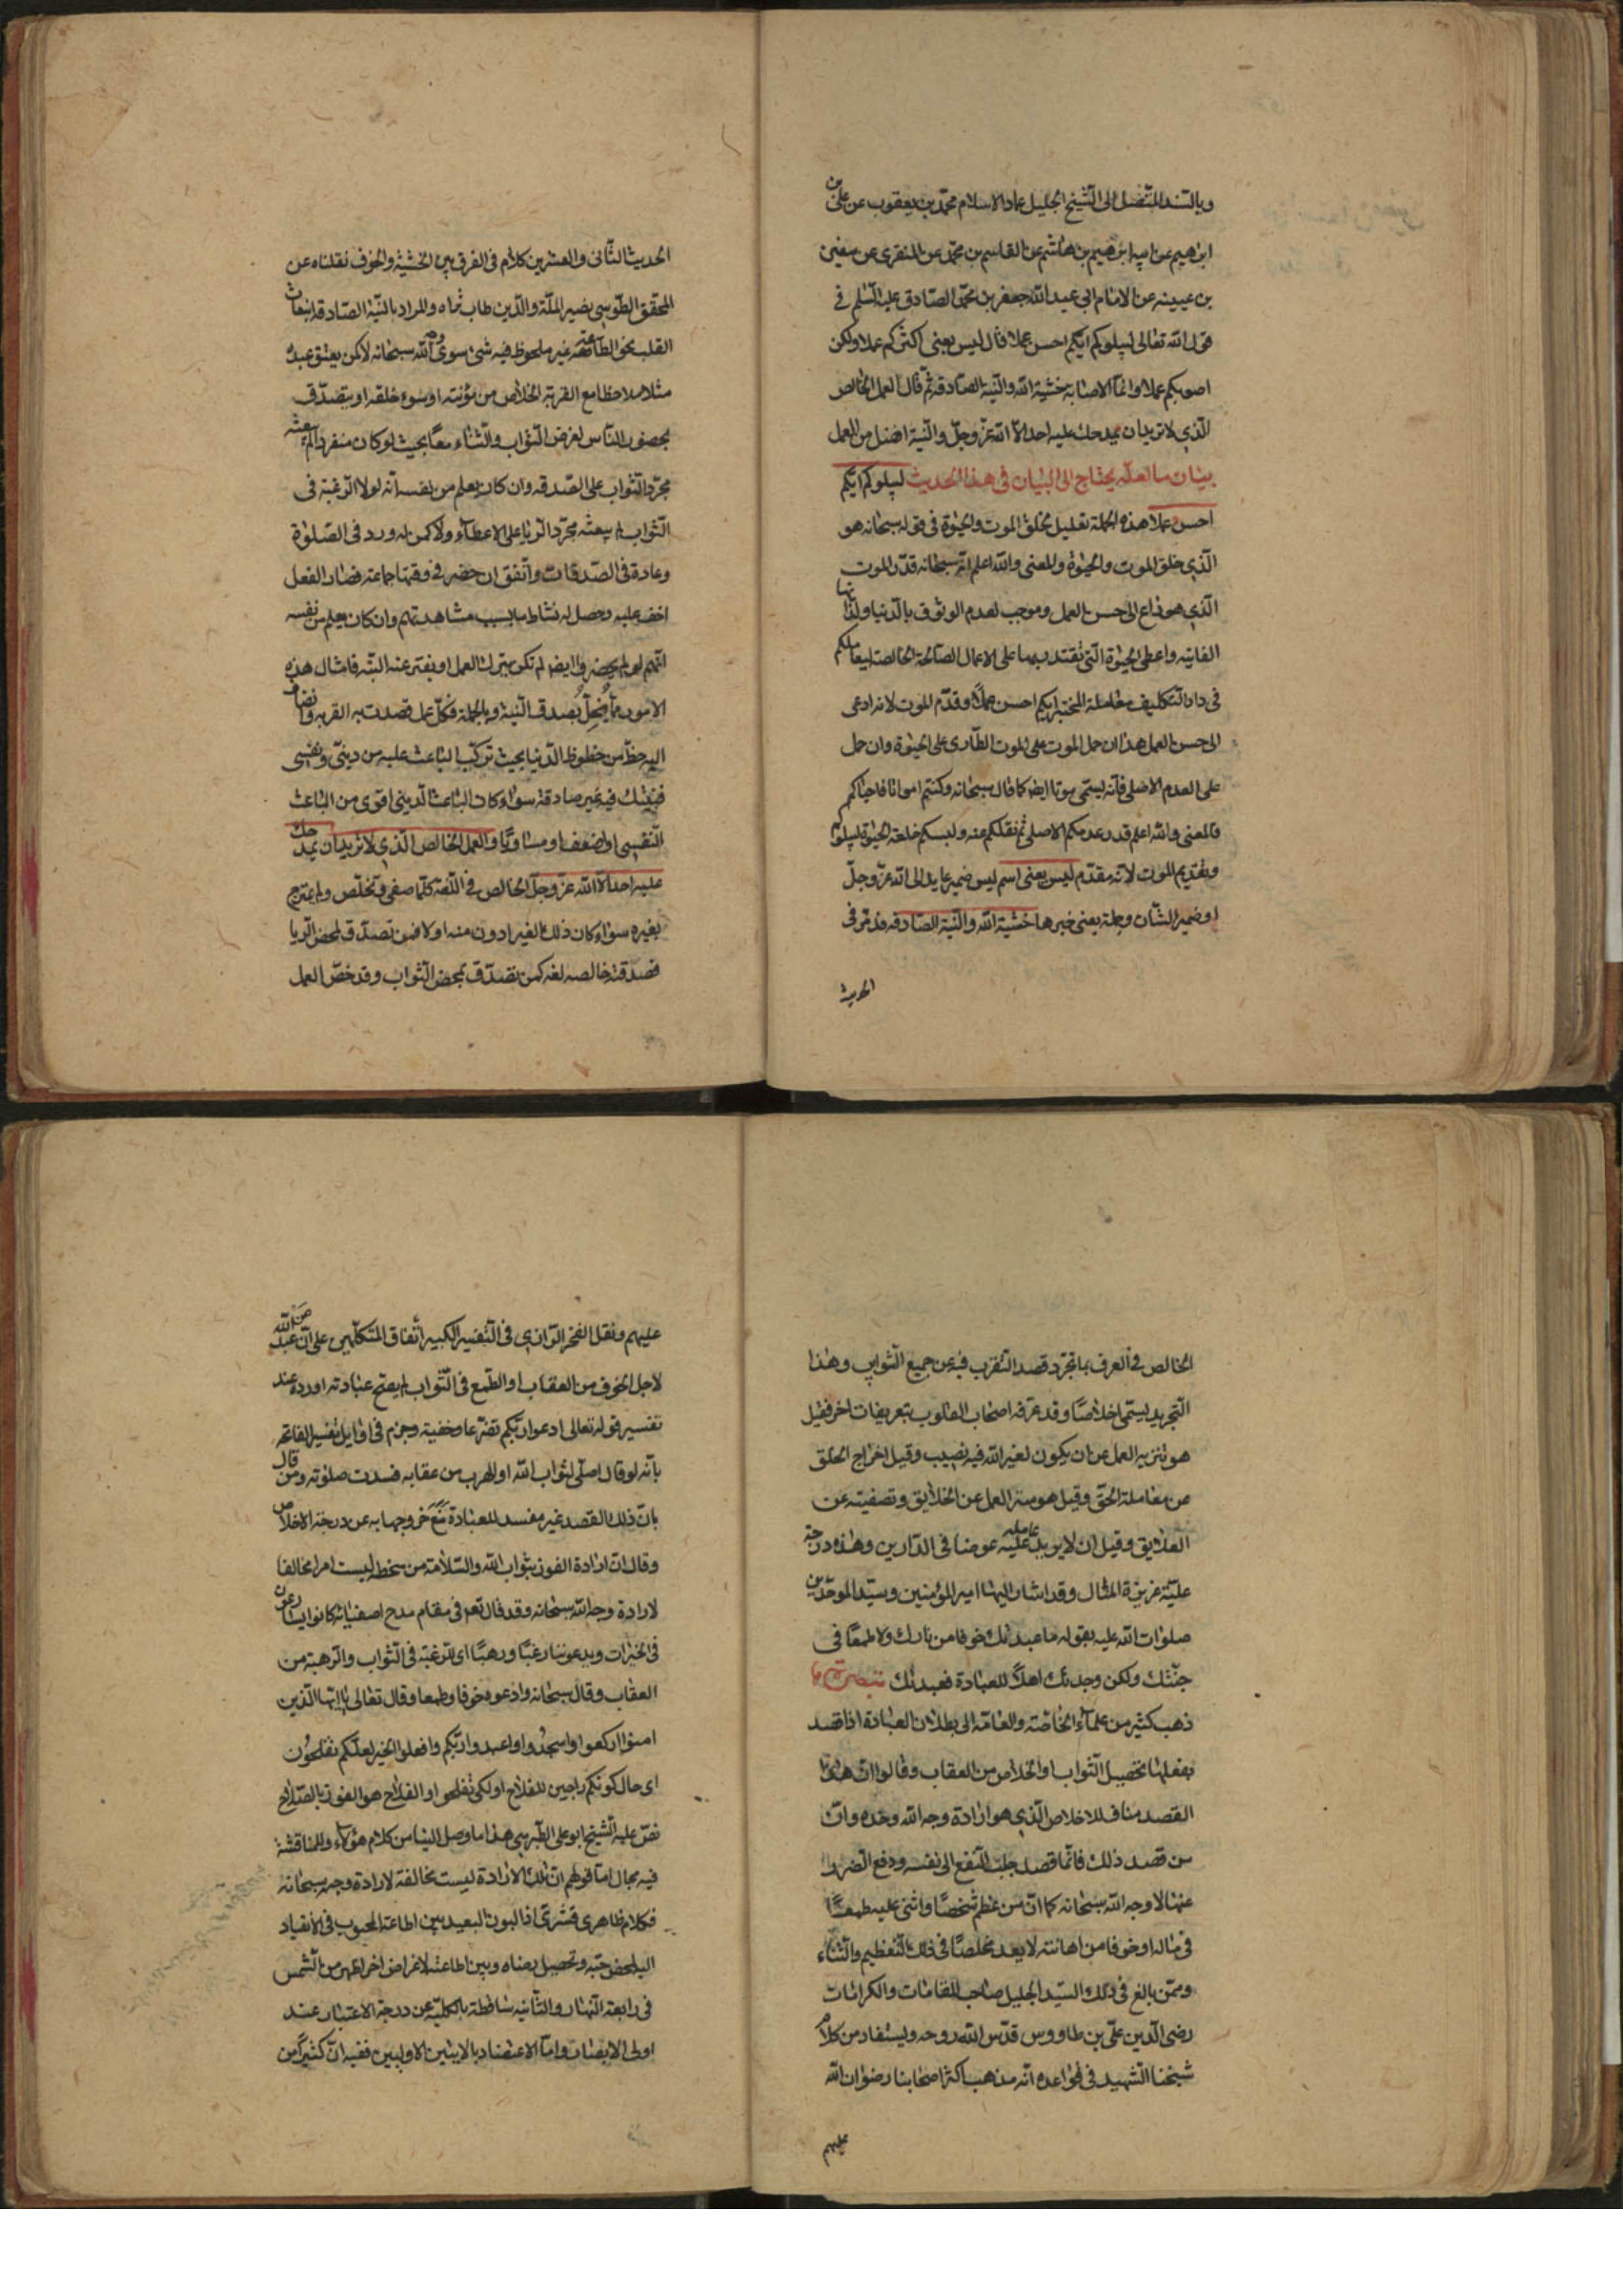 وبالسند المتصل الى الشيخ الجليل عماد الاسلام محمد بن يعقوب عن علي بن
ابرهيم عن ابيه ابرهيم بن هاشم عن القاسم بن محمد عن المنقرى عن سفين
بن عيينه عن الامام ابى عبد الله جعفر بن محمد الصادق عليه السلم فى
قول الله تعالى ليبلوكم ايكم احسن عملا قال ليس يعنى اكثركم عملا ولكن
اصوبكم عملا وانما الاصابه خشية الله والنية الصادقه ثم قال العمل الخالص
الذي لا تريد ان يمدحك عليه احد الا الله عز وجل والنية افضل من العمل
بيان ما لعله يحتاج الى البيان فى هذا الحديث ليبلوكم ايكم
احسن عملا هذه الجملة تعليل لخلق الموت والحيوة فى قوله سبحانه هو
الذي خلق الموت والحيوة والمعنى والله اعلم انه سبحانه قدر الموت
الذي هو داع الى حسن العمل وموجب لعدم الوثوق بالدنيا ولذاتها
الفانيه واعطى الحيوة التى تقتدر بها على الاعمال الصالحة الخالصة ليعاملكم
فى دار التكليف معاملة المختبر ايكم احسن عملا وقدم الموت لانه ادعى
الى حسن العمل هذا ان حمل الموت على الموت الطارى على الحيوة وان حمل
على العدم الاصلى فانه يسمى موتا ايضا كما قال سبحانه وكنتم امواتا فاحياكم
فالمعنى والله اعلم قدر عدمكم الاصلى ثم نقلكم عنه والبسكم خلعة الحيوة ليبلوكم
وتقديم الموت لانه مقدم ليس يعنى اسم ليس ضمير عايد الى الله عز وجل
او ضمير الشان وجملة يعنى خبرها خشية الله والنية الصادقه قد مر فى
الحديث
الحديث الثانى والعشرين كلام فى الفرق بين الخشية والخوف نقلناه عن
المحقق الطوسى نصير الملة والدين طاب ثراه والمراد بالنية الصادقة انبعاث
القلب نحو الطاعة غير ملحوظ فيه شئ سوى وجه الله سبحانه لا كمن يعتق عبده
مثلا ملاحظا مع القربة الخلاص من مؤنته او سوء خلقه او يتصدق
بحضور الناس لغرض الثواب والثناء معا بحيث لو كان منفردا لم يبعثه
مجرد الثواب على الصدقه وان كان يعلم من نفسه انه لولا الرغبة فى
الثواب لم يبعثه مجرد الريا على الاعطاء ولا كمن له ورد فى الصلوة
وعادة فى الصدقات واتفق ان حضر فى وقتها جماعة فصار الفعل
اخف عليه وحصل له نشاط ما بسبب مشاهدتهم وان كان يعلم من نفسه
انهم لو لم يحضروا ايضا لم تكن يترك العمل او يفتر عنه البتة فامثال هذه
الامور مما يخل بصدق النية وبالجملة فكل عمل قصدت به القربه وانضاف
اليه حظ من حظوظ الدنيا بحيث تركب الباعث عليه من دينى ونفسى
فنيتك فيه غير صادقة سواء كان الباعث الدينى اقوى من الباعث
النفسى او اضعف او مساويا والعمل الخالص الذي لا تريد ان يمدحك
عليه احد الا الله عز وجل الخالص فى اللغة كلما صفى وتخلص ولم يمتزج
بغيره سواء كان ذلك الغير ادون منه او لا فمن تصدق لمحض الريا
فصدقته خالصه لغه كمن تصدق لمحض الثواب وقد خص العمل
الخالص فى العرف بما تجرد قصد التقرب فيه عن جميع الشوايب وهذا
التجريد يسمى اخلاصا وقد عرفه اصحاب القلوب بتعريفات اخر فقيل
هو تنزيه العمل عن ان يكون لغير الله فيه نصيب وقيل اخراج الخلق
عن معاملة الحق وقيل هو ستر العمل عن الخلايق وتصفيته عن
العلايق وقيل ان لا يريد عامله عليه عوضا فى الدارين وهذه درجة
علية عزيزة المثال وقد اشار اليها امير المؤمنين وسيد الموحدين
صلوات الله عليه بقوله ما عبدتك خوفا من نارك ولا طمعا فى
جنتك ولكن وجدتك اهلا للعبادة فعبدتك تبصرة
ذهب كثير من علماء الخاصة والعامة الى بطلان العبادة اذا قصد
بفعلها تحصيل الثواب او الخلاص من العقاب وقالوا ان هذا
القصد مناف للاخلاص الذي هو ارادة وجه الله وحده وان
من قصد ذلك فانما قصد جلب النفع الى نفسه ودفع الضرر
عنها لا وجه الله سبحانه كما ان من عظم شخصا واثنى عليه طمعا
فى ماله او خوفا من اهانته لا يعد مخلصا فى ذلك التعظيم والثناء
وممن بالغ فى ذلك السيد الجليل صاحب المقامات والكرامات
رضى الدين على بن طاووس قدس الله روحه ويستفاد من كلام
شيخنا الشهيد فى قواعده انه مذهب اكثر اصحابنا رضوان الله
عليهم
عليهم ونقل الفخر الرازى فى التفسير الكبير اتفاق المتكلمين على ان من عبد الله
لاجل الخوف من العقاب او الطمع فى الثواب لم يصح عبادته اورده عند
تفسير قوله تعالى ادعوا ربكم تضرعا وخفية وجزم فى اوايل تفسير الفاتحه
بانه لو قال اصلى لثواب الله او الهرب من عقابه فسدت صلوته ومن قال
بان ذلك القصد غير مفسد للعبادة منع خروجها به عن درجة الاخلاص
وقال ان ارادة الفوز بثواب الله والسلامة من سخطه ليست امرا مخالفا
لارادة وجه الله سبحانه وقد قال تعالى فى مقام مدح اصفيائه كانوا يسارعون
فى الخيرات ويدعوننا رغبا ورهبا اى للرغبة فى الثواب والرهبة من
العقاب وقال سبحانه وادعوه خوفا وطمعا وقال تعالى يا ايها الذين
امنوا اركعوا واسجدوا واعبدوا ربكم وافعلوا الخير لعلكم تفلحون
اى حال كونكم راجين للفلاح او لكى تفلحوا والفلاح هو الفوز بالصلاح
نص عليه الشيخ ابو على الطبرسى هذا ما وصل الينا من كلام هؤلاء وللمناقشة
فيه مجال اما قولهم ان تلك الارادة ليست مخالفة لارادة وجه سبحانه
فكلام ظاهرى قشرى اذ البون البعيد بين اطاعة المحبوب فى الانقياد
اليه لمحض حبه وتحصيل رضاه وبين اطاعته لاغراض اخر اظهر من الشمس
فى رابعة النهار والثانيه ساقطة بالكلية عن درجة الاعتبار عند
اولى الابصار واما الاعتضاد بالايتين الاوليين ففيه ان كثيرا من